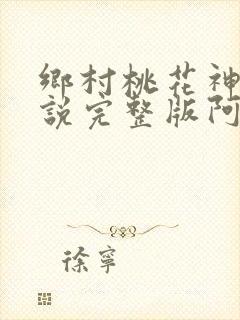 鄉村桃花神
說完整版阿
徐寧